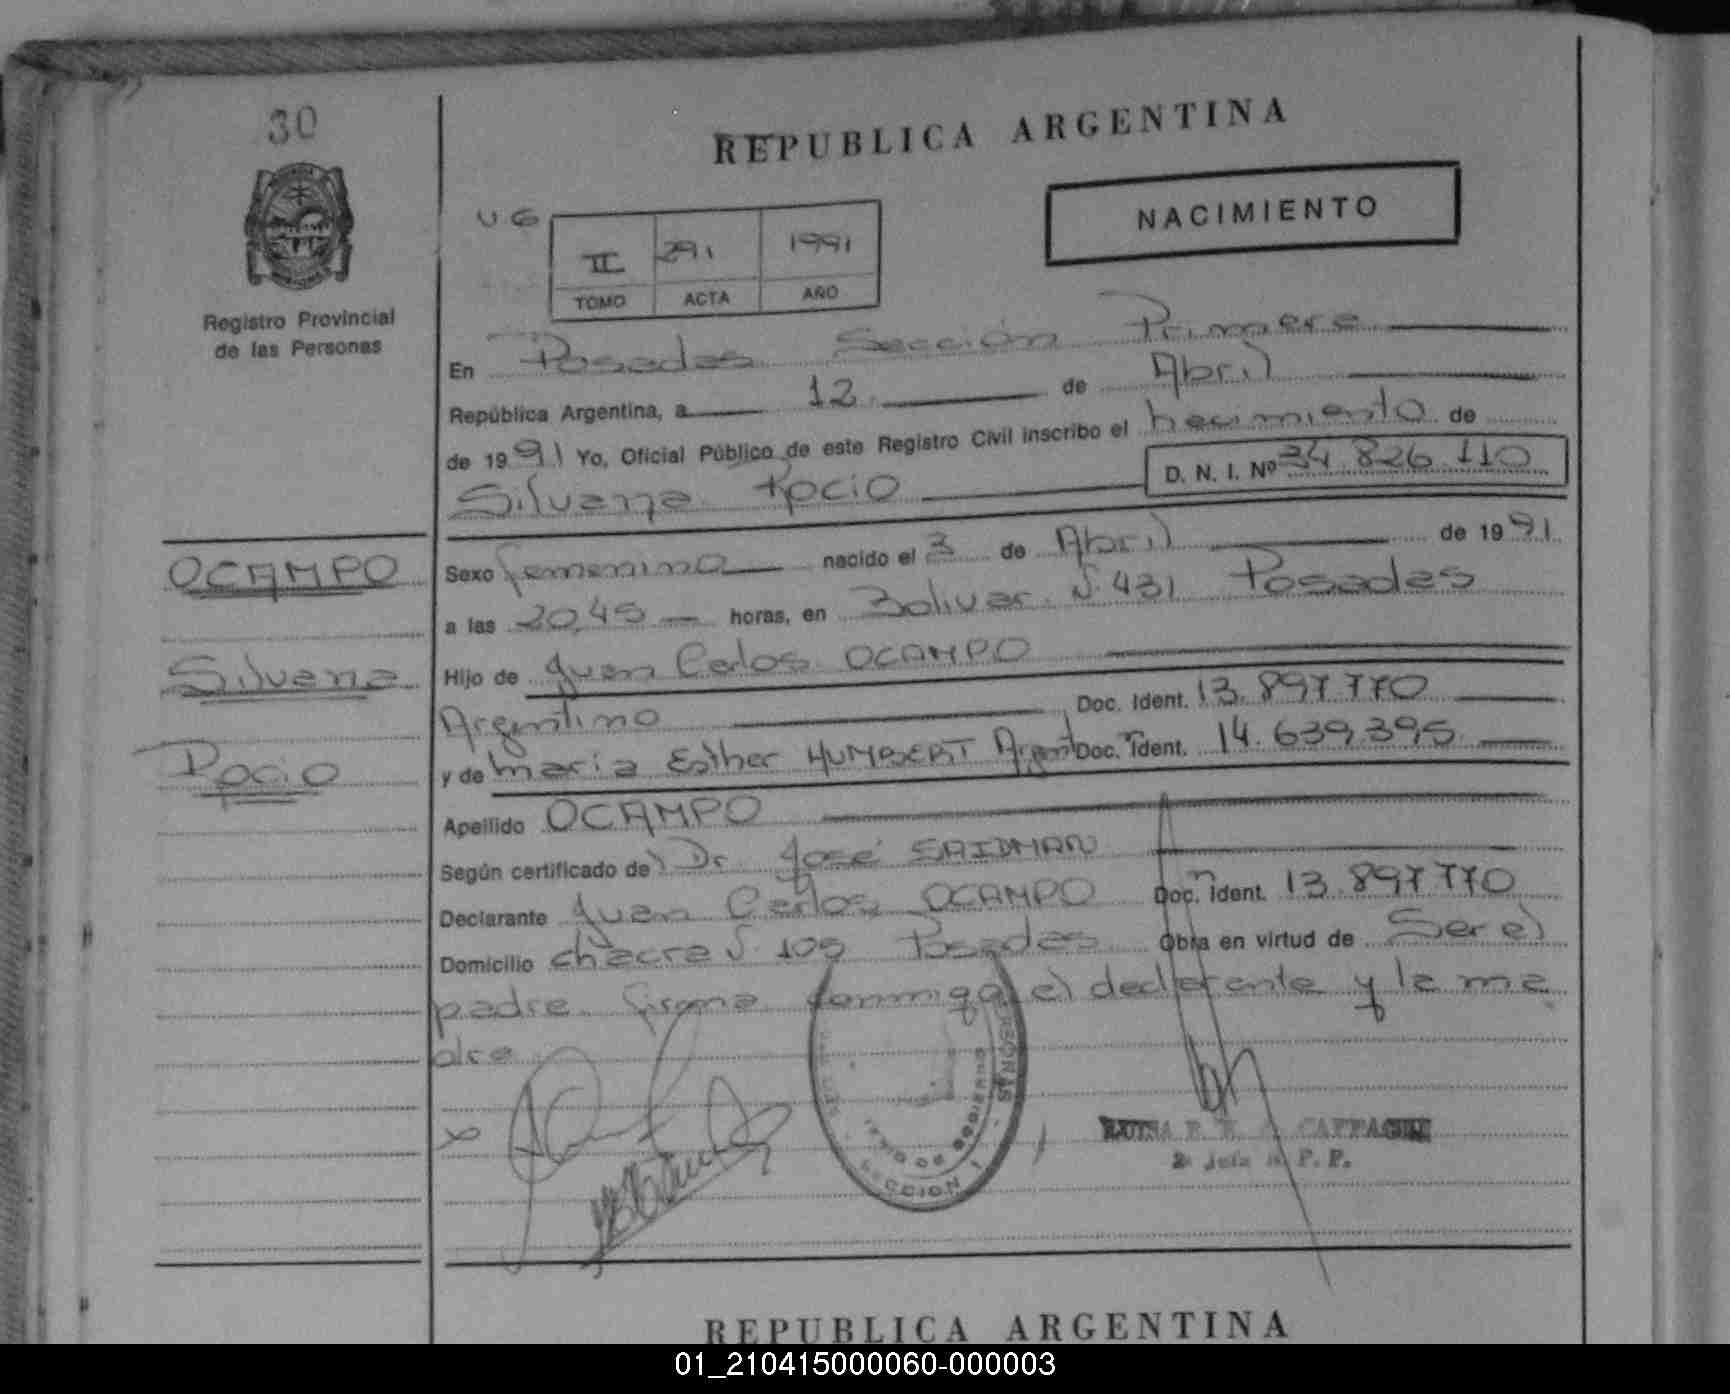 30
REPUBLICA ARGENTINA
NACIMIENTO
UG
II 291 1991
TOMO ACTA AÑO
Registro Provincial
de las Personas
En Posadas Sección Primera
República Argentina, a 12 de Abril
de 1991 Yo, Oficial Público de este Registro Civil inscribo el nacimiento de
Silvana Rocio D. N. I. Nº 34.826.110
OCAMPO
Silvana
Rocio
Sexo femenino nacido el 3 de Abril de 1991
a las 20,45 horas, en Bolivar N. 431 Posadas
Hijo de Juan Carlos OCAMPO
Argentino Doc. Ident. 13.897.770
y de Maria Esther HUMBERT Argentina Doc. Ident. 14.639.395
Apellido OCAMPO
Según certificado de Dr José SAIDMAN
Declarante Juan Carlos OCAMPO Doc. Ident. 13.897.770
Domicilio chacra N. 105 Posadas Obra en virtud de Ser el
padre. firma conmigo el declarante y la ma
dre
PERSONAS
SECCION 1
2 Jefe R. P. P.
REPUBLICA ARGENTINA
01_210415000060-000003